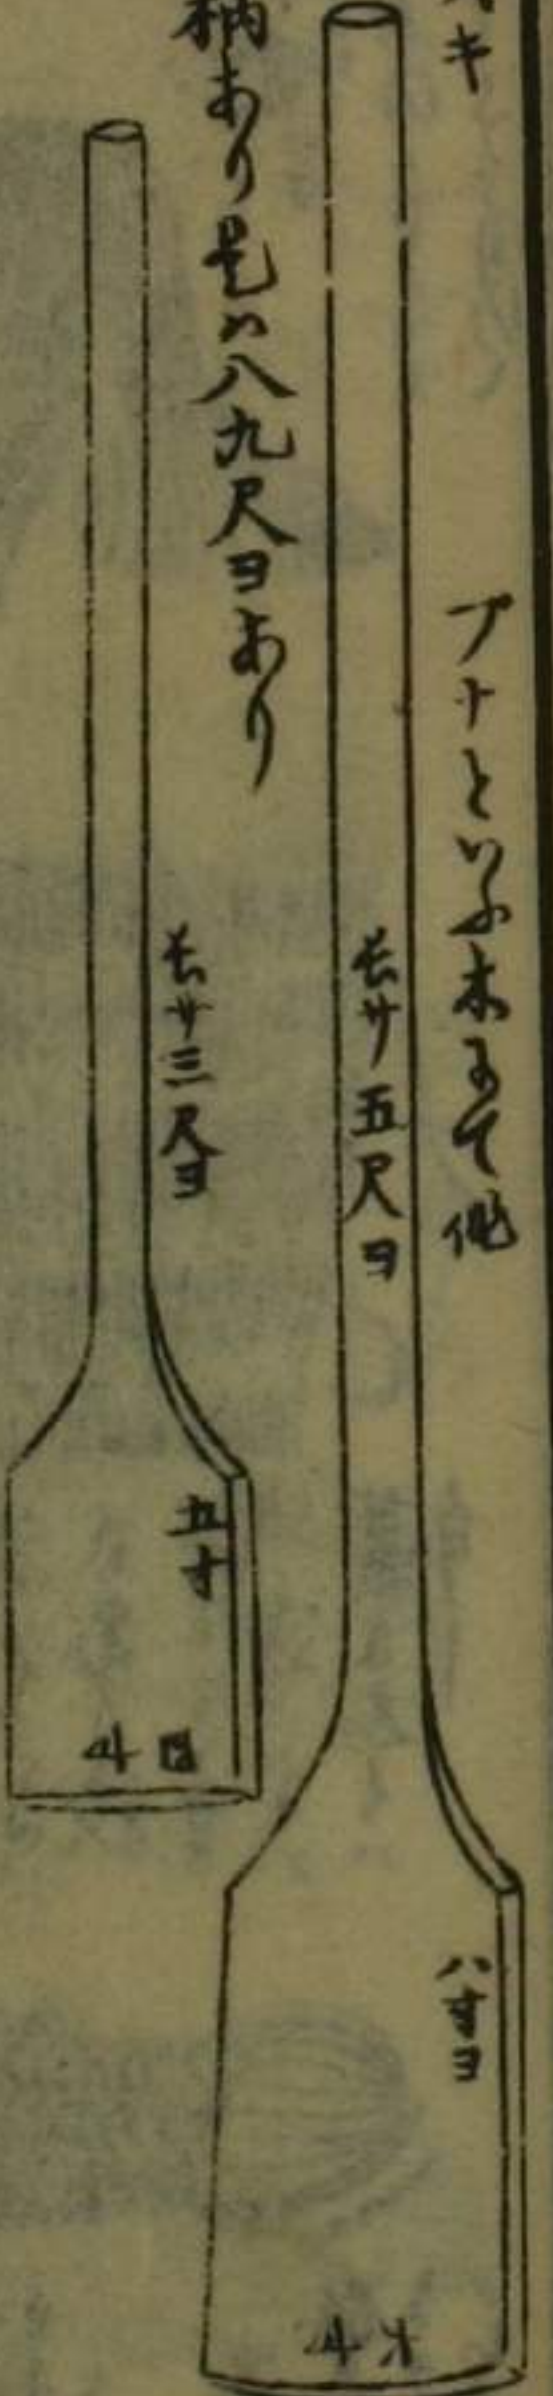 キ
ブナといふ木にて作
長サ五尺ヨ
八寸ヨ
柄あり是ハ八九尺ヨあり
長サ三尺ヨ
五寸